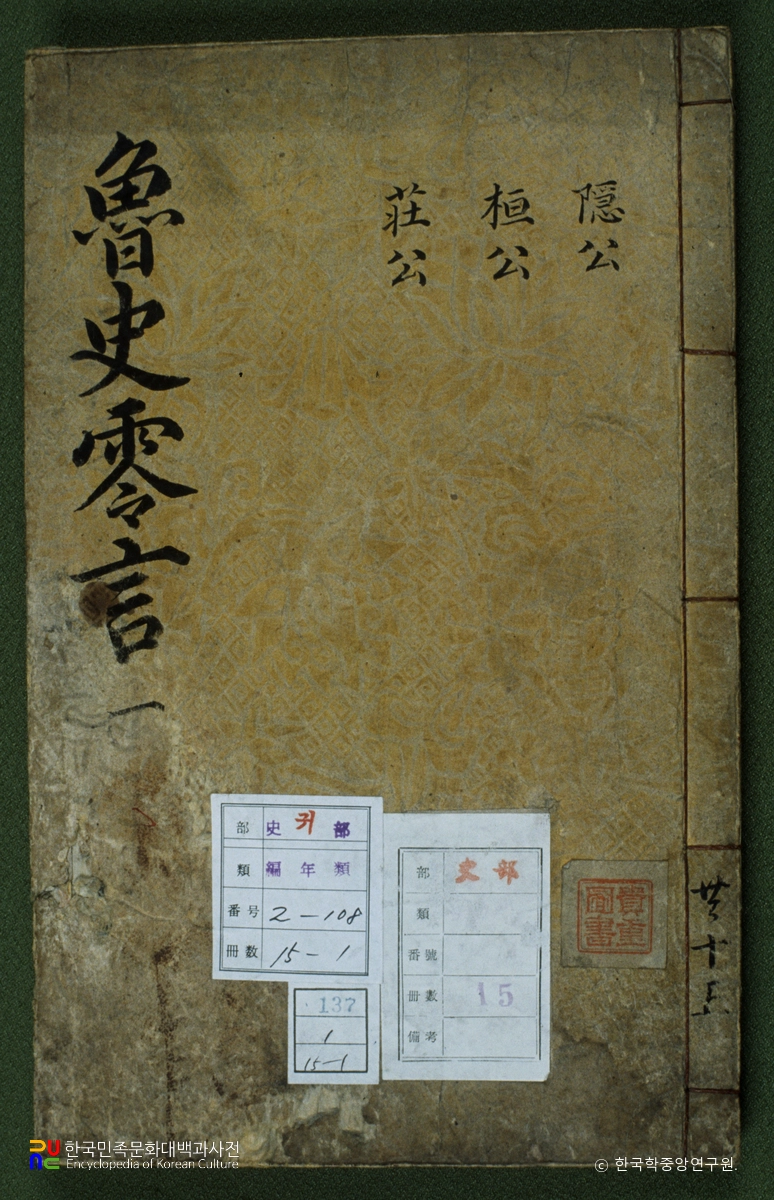 隠公
桓公
莊公
魯史零言 一
共十五
部 史 귀 部
類 編年類
番号 2-108
冊数 15-1
137
1
15-1
部 史部
類
番號
冊數 15
備考
貴重
圖書
한국민족문화대백과사전
Encyclopedia of Korean Culture
© 한국학중앙연구원.